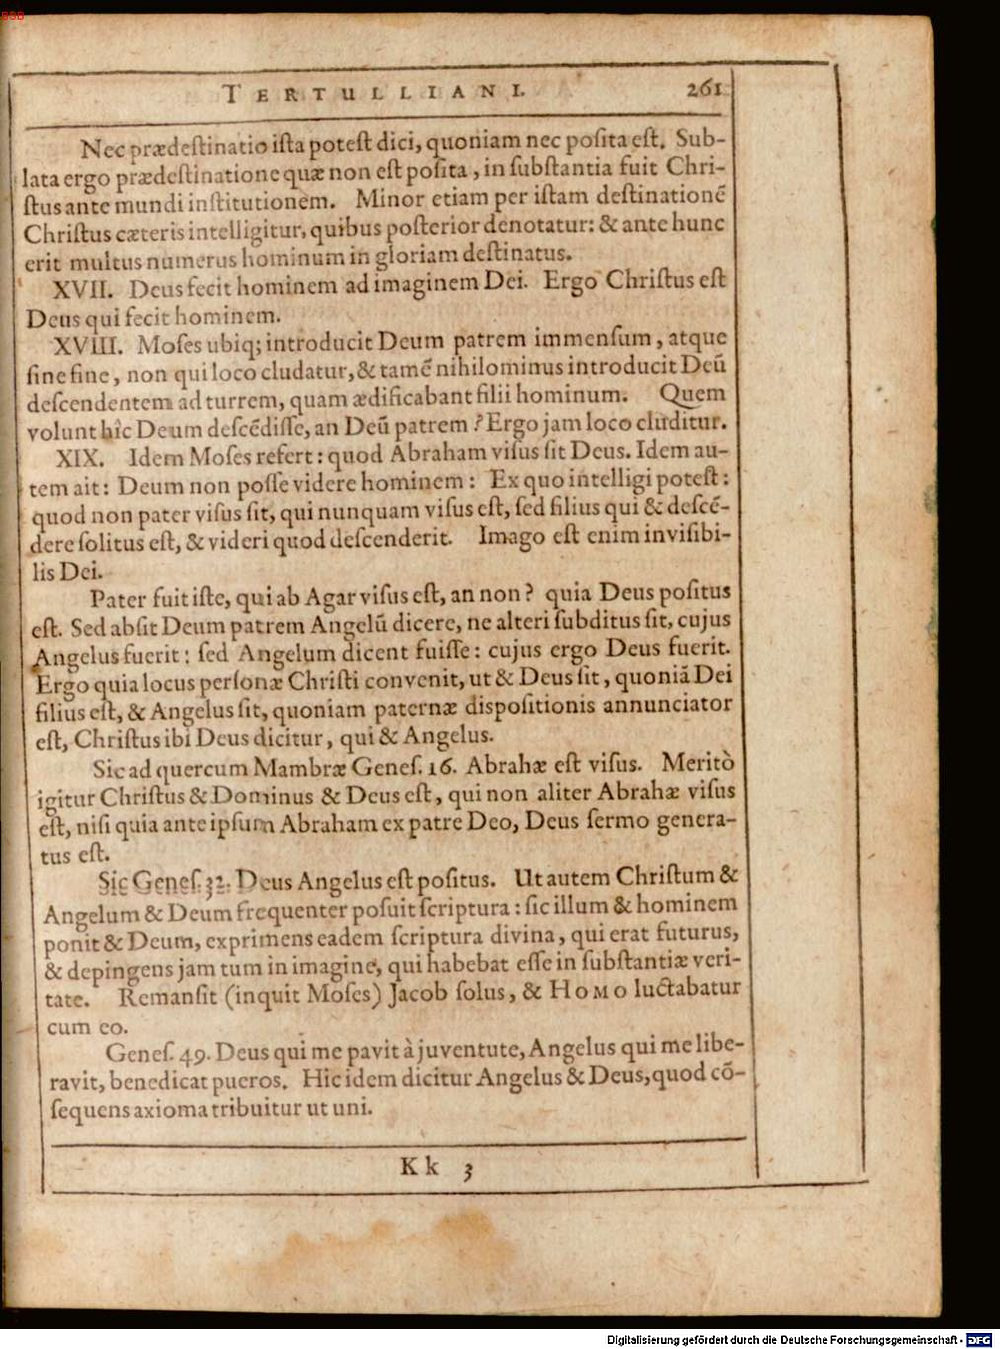 BSB
TERTULLIANI. 261
Nec prædeſtinatio iſta poteſt dici, quoniam nec poſita eſt. Sub-
lata ergo prædeſtinatione quæ non eſt poſita, in ſubſtantia fuit Chri-
ſtus ante mundi inſtitutionem. Minor etiam per iſtam deſtinationē
Chriſtus cæteris intelligitur, quibus poſterior denotatur: & ante hunc
erit multus numerus hominum in gloriam deſtinatus.
XVII. Deus fecit hominem ad imaginem Dei. Ergo Chriſtus eſt
Deus qui fecit hominem.
XVIII. Moſes ubiq; introducit Deum patrem immenſum, atque
ſine fine, non qui loco cludatur, & tamē nihilominus introducit Deū
deſcendentem ad turrem, quam ædificabant filii hominum. Quem
volunt hîc Deum deſcēdiſſe, an Deū patrem? Ergo jam loco cluditur.
XIX. Idem Moſes refert: quod Abraham viſus ſit Deus. Idem au-
tem ait: Deum non poſſe videre hominem: Ex quo intelligi poteſt:
quod non pater viſus ſit, qui nunquam viſus eſt, ſed filius qui & deſcē-
dere ſolitus eſt, & videri quod deſcenderit. Imago eſt enim inviſibi-
lis Dei.
Pater fuit iſte, qui ab Agar viſus eſt, an non? quia Deus poſitus
eſt. Sed abſit Deum patrem Angelū dicere, ne alteri ſubditus ſit, cujus
Angelus fuerit: ſed Angelum dicent fuiſſe: cujus ergo Deus fuerit.
Ergo quia locus perſonæ Chriſti convenit, ut & Deus ſit, quoniā Dei
filius eſt, & Angelus ſit, quoniam paternæ diſpoſitionis annunciator
eſt, Chriſtus ibi Deus dicitur, qui & Angelus.
Sic ad quercum Mambræ Geneſ. 16. Abrahæ eſt viſus. Meritò
igitur Chriſtus & Dominus & Deus eſt, qui non aliter Abrahæ viſus
eſt, niſi quia ante ipſum Abraham ex patre Deo, Deus ſermo genera-
tus eſt.
Sic Geneſ. 32. Deus Angelus eſt poſitus. Ut autem Chriſtum &
Angelum & Deum frequenter poſuit ſcriptura: ſic illum & hominem
ponit & Deum, exprimens eadem ſcriptura divina, qui erat futurus,
& depingens jam tum in imagine, qui habebat eſſe in ſubſtantiæ veri-
tate. Remanſit (inquit Moſes) Jacob ſolus, & HOMO luctabatur
cum eo.
Geneſ. 49. Deus qui me pavit à juventute, Angelus qui me libe-
ravit, benedicat pueros. Hic idem dicitur Angelus & Deus, quod cō-
ſequens axioma tribuitur ut uni.
Kk 3
Digitalisierung gefördert durch die Deutsche Forschungsgemeinschaft - DFG